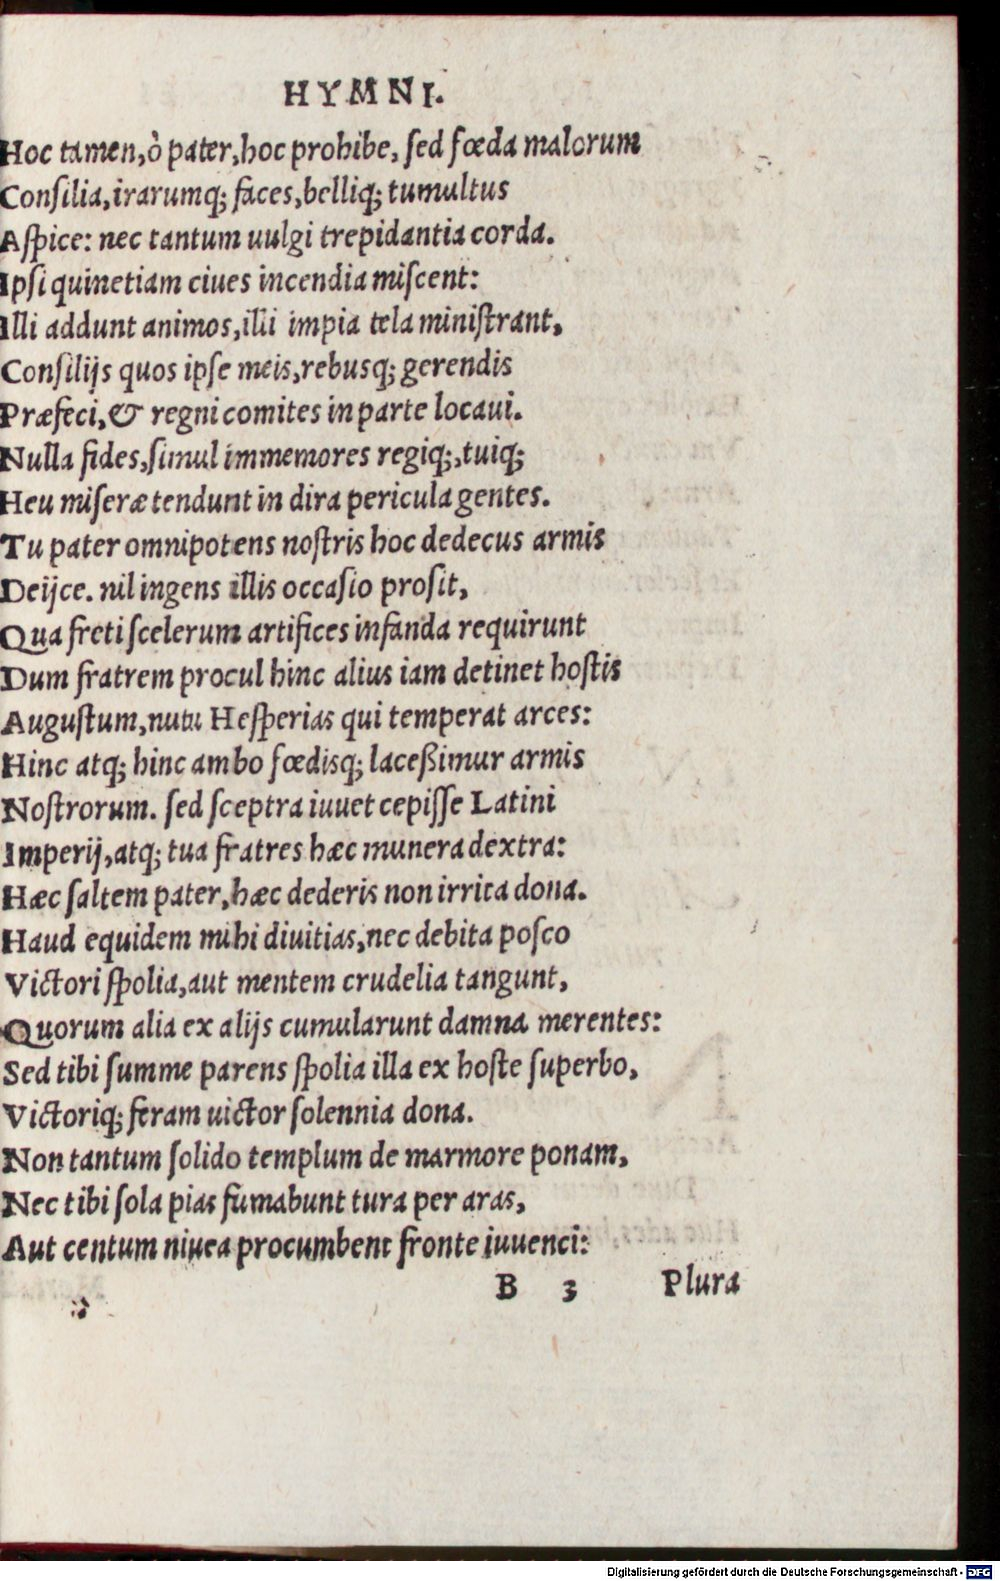 HYMNI.
Hoc tamen,ò pater,hoc prohibe, sed fœda malorum
Consilia,irarumq; faces,belliq; tumultus
Aspice: nec tantum uulgi trepidantia corda.
Ipsi quinetiam ciues incendia miscent:
Illi addunt animos,illi impia tela ministrant,
Consilijs quos ipse meis,rebusq; gerendis
Præfeci,& regni comites in parte locaui.
Nulla fides,simul immemores regiq;,tuiq;
Heu miseræ tendunt in dira pericula gentes.
Tu pater omnipotens nostris hoc dedecus armis
Deijce. nil ingens illis occasio prosit,
Qua freti scelerum artifices infanda requirunt
Dum fratrem procul hinc alius iam detinet hostis
Augustum,nutu Hesperias qui temperat arces:
Hinc atq; hinc ambo fœdisq; laceßimur armis
Nostrorum. sed sceptra iuuet cepisse Latini
Imperij,atq; tua fratres hæc munera dextra:
Hæc saltem pater,hæc dederis non irrita dona.
Haud equidem mihi diuitias,nec debita posco
Victori spolia,aut mentem crudelia tangunt,
Quorum alia ex alijs cumularunt damna merentes:
Sed tibi summe parens spolia illa ex hoste superbo,
Victoriq; feram uictor solennia dona.
Non tantum solido templum de marmore ponam,
Nec tibi sola pias fumabunt tura per aras,
Aut centum niuea procumbent fronte iuuenci:
B 3 Plura
Digitalisierung gefördert durch die Deutsche Forschungsgemeinschaft - DFG